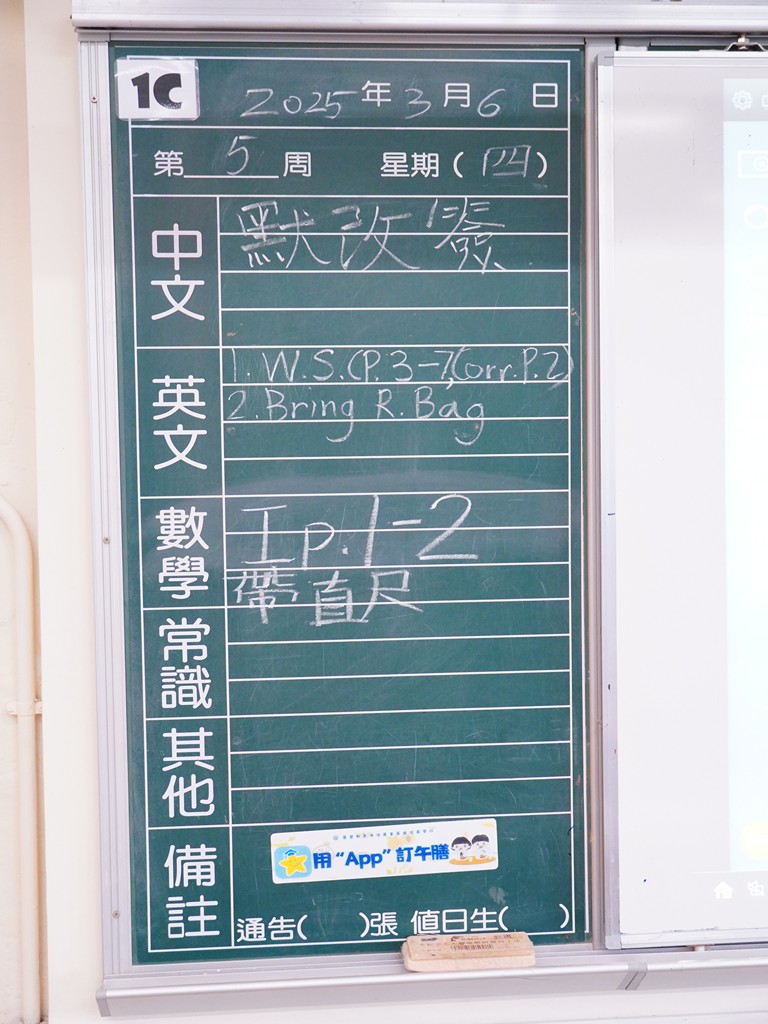 1C
2025年3月6日
第5周 星期(四)
中文
默改簽
英文
1. W.S.(P.3-7,Corr.P.2)
2. Bring R. Bag
數學
工p.1-2
帶直尺
常識
其他
備註
用“App”訂午膳
通告( )張 值日生( )